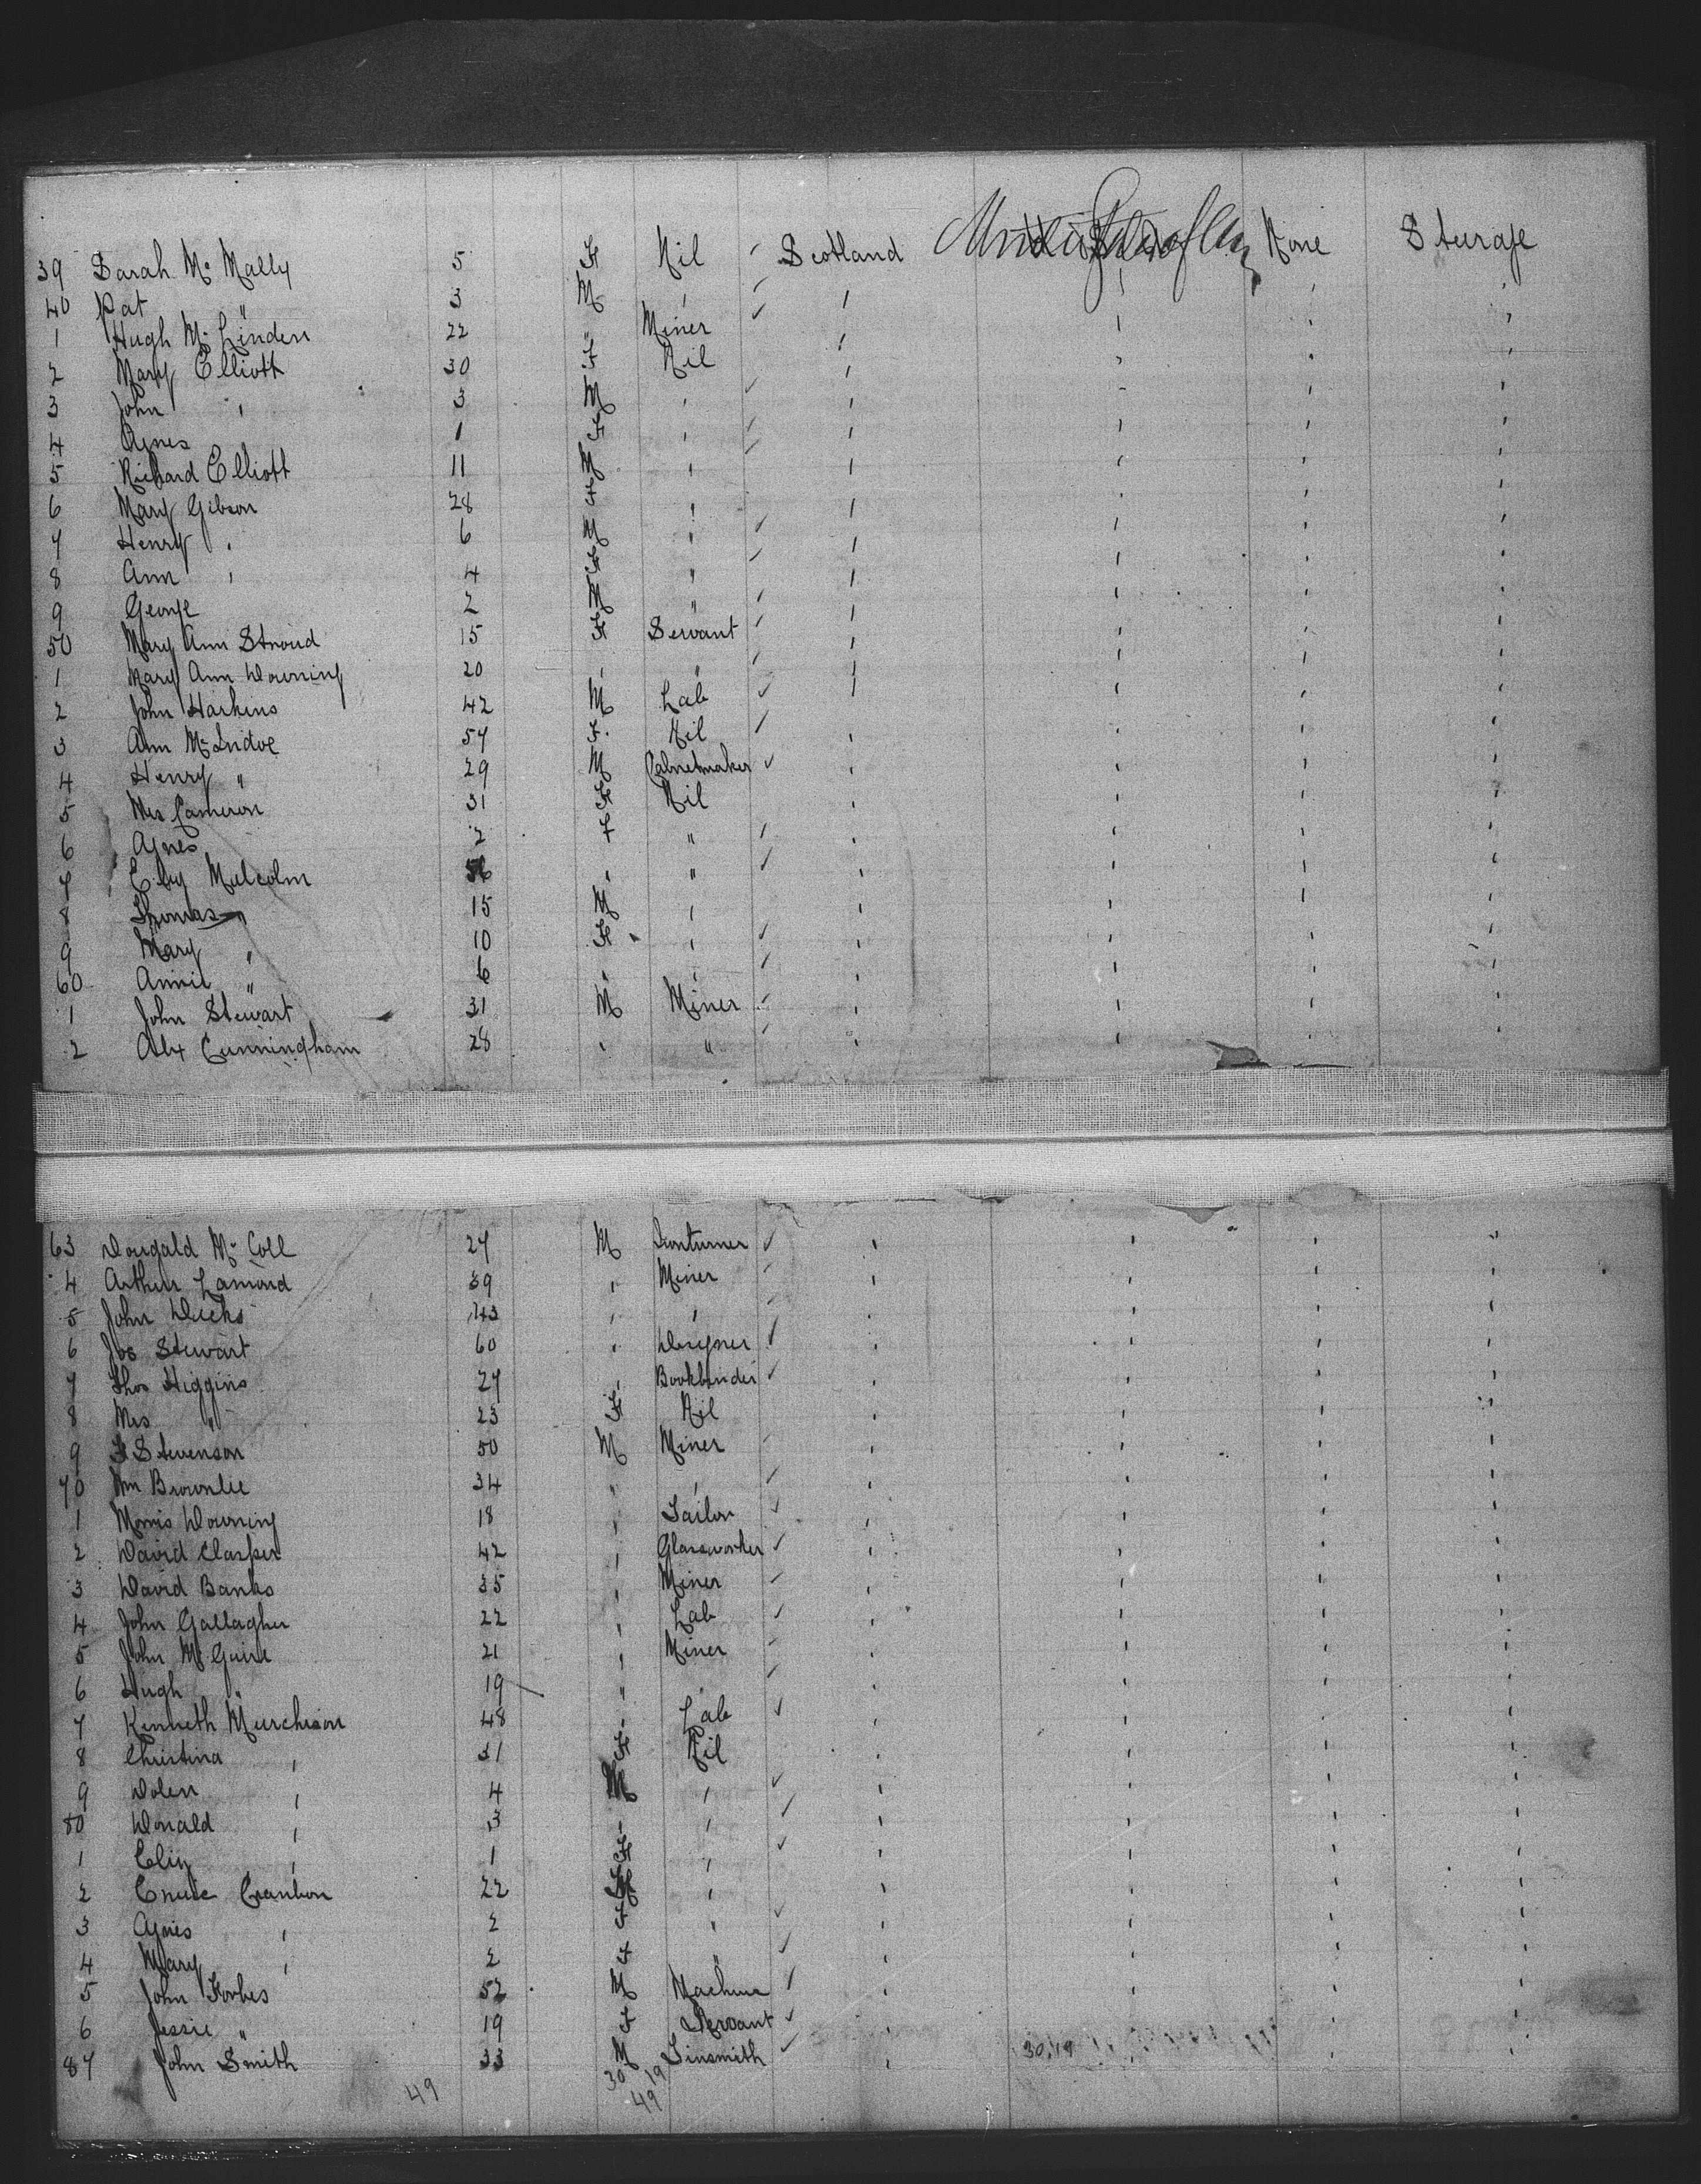 39 Sarah Mc Mally 5 F Nil ✓ Scotland None Sturage
40 Pat " 3 M ' ✓ ' ' ' '
1 Hugh Mc Linden 22 " Miner ' ' ' '
2 Mary Elliott 30 F Nil ' ' ' '
3 John " 3 M ' ✓ ' ' ' '
4 Agnes 1 F ' ✓ ' ' ' '
5 Richard Elliott 11 M ' ✓ ' ' ' '
6 Mary Gibson 28 F ' ' ' ' '
7 Henry " 6 M ' ✓ ' ' ' '
8 Ann " 4 F " ✓ ' ' ' '
9 George 2 M " ✓ ' ' ' '
50 Mary Ann Stroud 15 F Servant ✓ ' ' ' '
1 Mary Ann Downing 20 ' " ✓ ' ' ' '
2 John Harkins 42 M Lab ✓ ' ' ' '
3 Ann McIndoe 57 F. Nil ✓ ' ' ' '
4 Henry " 29 M Cabnetmaker ✓ ' ' ' '
5 Mrs Cameron 31 F Nil ' ' ' '
6 Agnes 2 F " ✓ ' ' ' '
7 Malcolm ' " ✓ ' ' ' '
8 Thomas " 15 M ' ' ' ' '
9 Mary " 10 F ' ✓ ' ' ' '
60 Annie " 6 " ' ✓ ' ' ' '
1 John Stewart 31 M Miner ✓ ' ' ' '
2 Alex Cunningham 28 ' " ✓ ' ' ' '
63 Dougald Mc Coll 27 M Ironturner ✓ ' ' ' '
4 Arthur Lamond 39 ' Miner ✓ ' ' ' '
5 John Dicks 43 ' ' ✓ ' ' ' '
6 Jos Stewart 60 ' Designer ✓ ' ' ' '
7 Thos Higgins 27 ' Bookbinder ✓ ' ' ' '
8 Mrs " 23 F Nil ' ' ' '
9 F Stevenson 50 M Miner ✓ ' ' ' '
70 Wm Brownlie 34 " ' ✓ ' ' ' '
1 Morris Downing 18 ' Tailor ✓ ' ' ' '
2 David Clasper 42 ' Glassworker ✓ ' ' ' '
3 David Banks 35 ' Miner ✓ ' ' ' '
4 John Gallagher 22 ' Lab ✓ ' ' ' '
5 John McGuire 21 ' Miner ✓ ' ' ' '
6 Hugh " 19 " ' ✓ ' ' ' '
7 Kenneth Murchison 48 ' Lab ✓ ' ' ' '
8 Christina ' 31 F Nil ' ' ' '
9 Dolen ' 4 M ' ✓ ' ' ' '
80 Donald ' 3 ' ' ✓ ' ' ' '
1 Eliz ' 1 F ' ✓ ' ' ' '
2 22 ' ' ' ' '
3 Agnes ' 2 F " ✓ ' ' ' '
4 Mary ' 2 F " ✓ ' ' ' '
5 John Forbes 52 M Machine ✓ ' ' ' '
6 Jessie " 19 F Servant ✓ ' ' ' '
87 John Smith 33 M Tinsmith ✓ ' 30/19 ' ' '
30 19
49 49